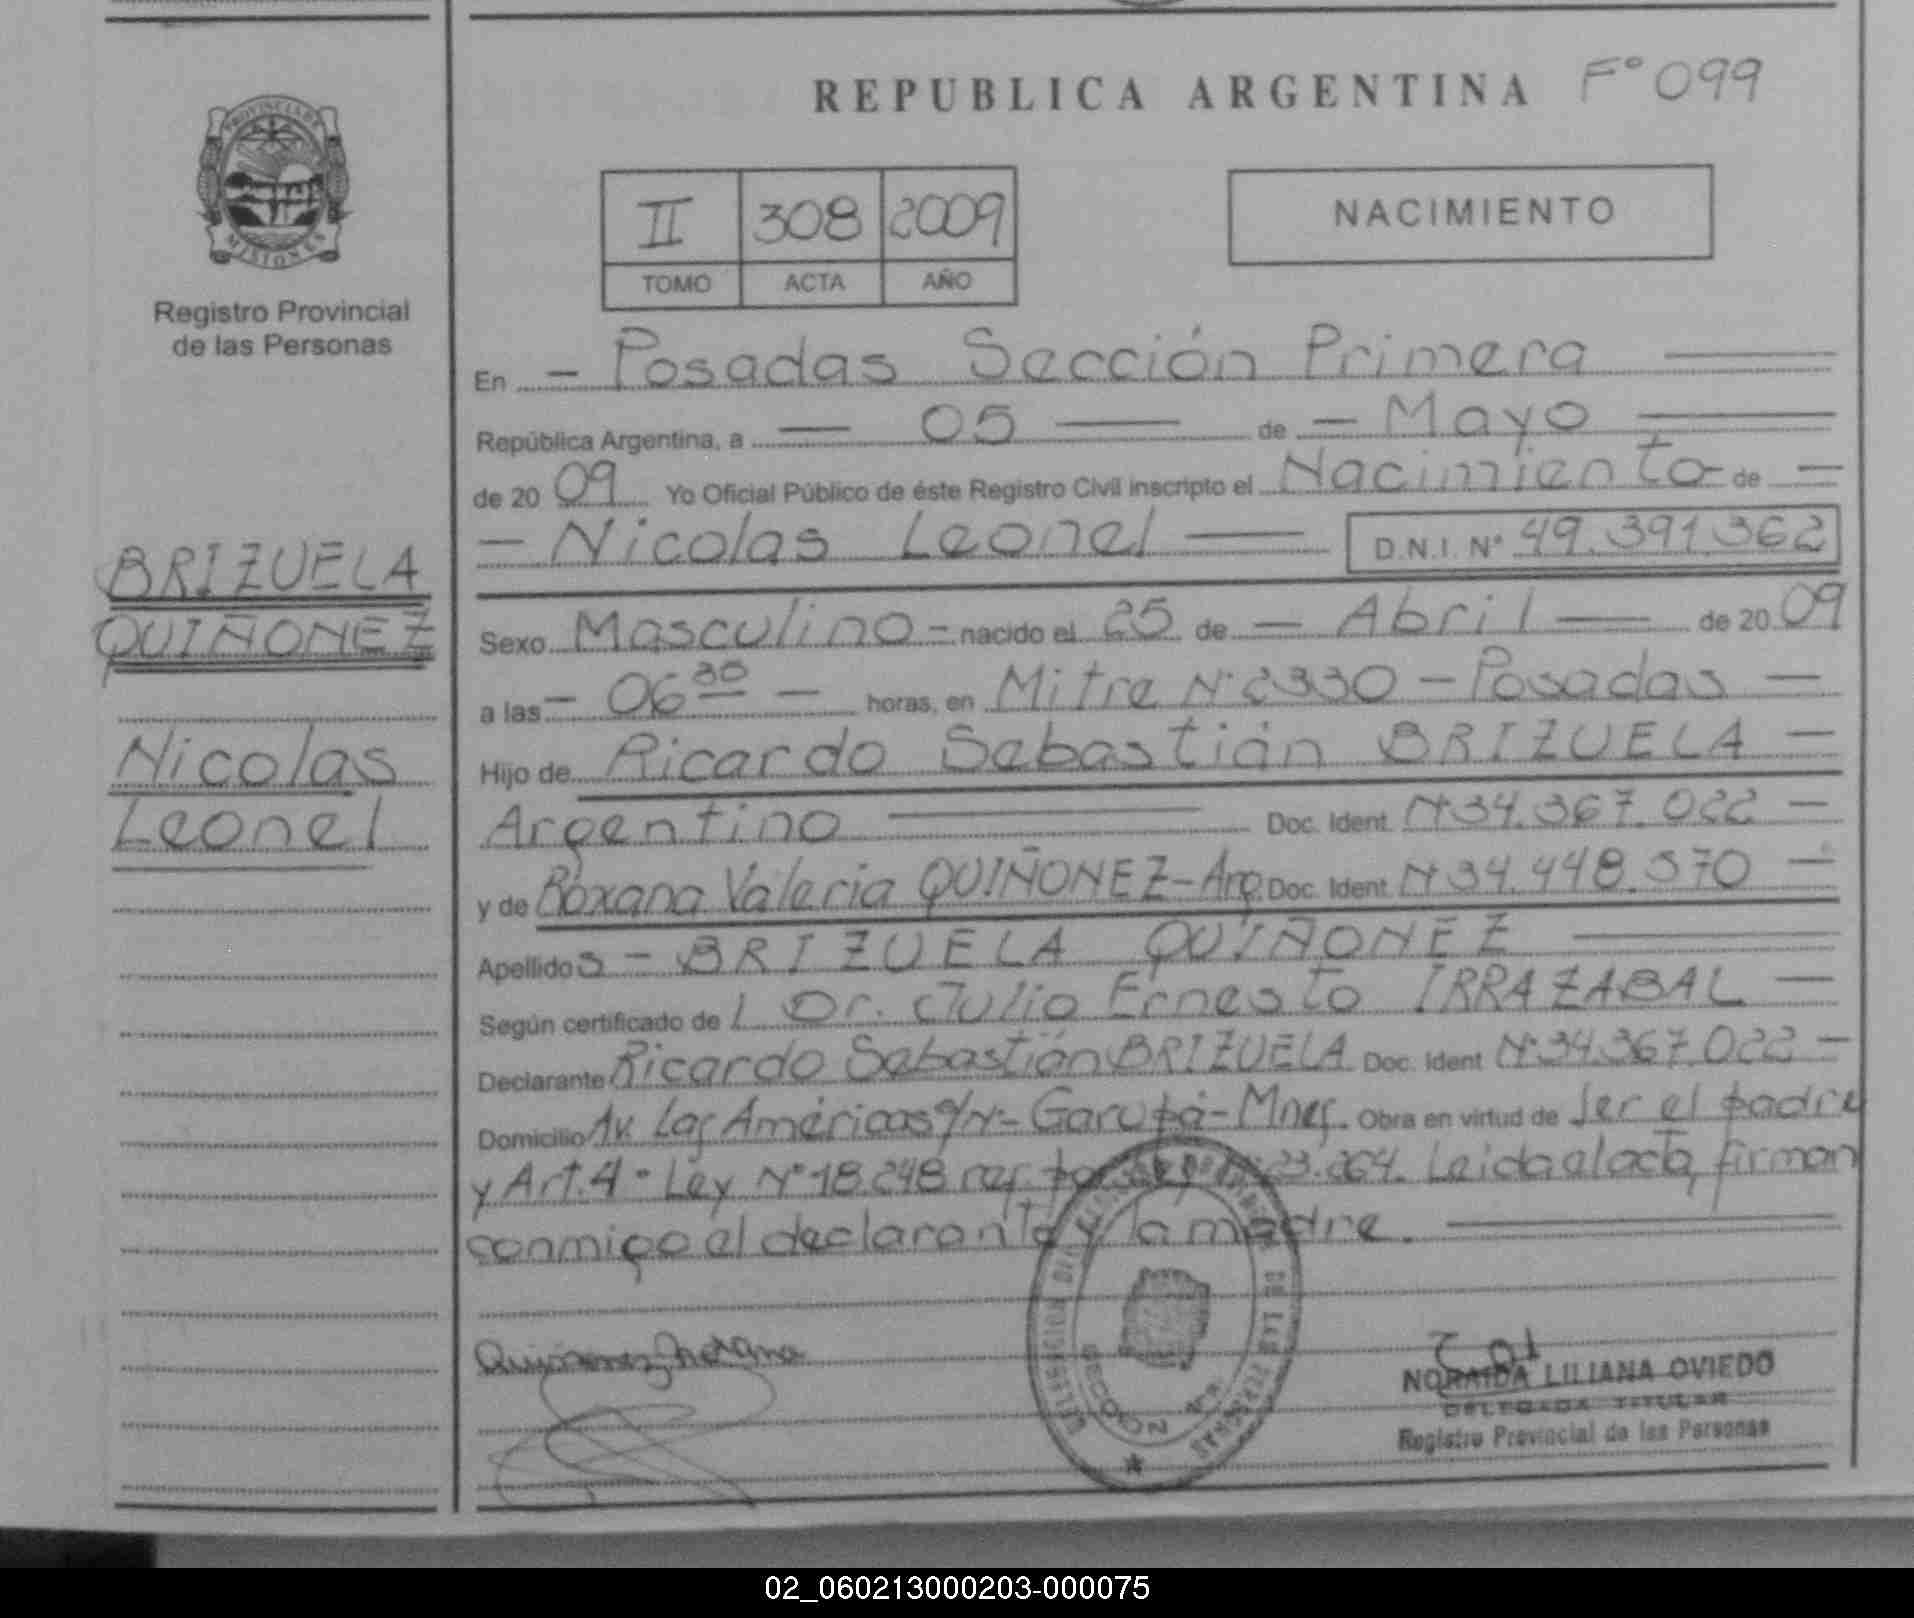 REPUBLICA ARGENTINA F° 099
PROVINCIA DE
MISIONES
Registro Provincial
de las Personas
II 308 2009
TOMO ACTA AÑO
NACIMIENTO
En - Posadas Sección Primera
República Argentina, a - 05 - de - Mayo
de 20 09 Yo Oficial Público de éste Registro Civil inscripto el Nacimiento - de -
- Nicolas Leonel - D.N.I. N° 49.391.362
BRIZUELA
QUIÑONEZ
Nicolas
Leonel
Sexo Masculino - nacido el 25 de - Abril - de 20 09
a las - 06 30 - horas, en Mitre N° 2330 - Posadas -
Hijo de Ricardo Sebastián BRIZUELA -
Argentino Doc. Ident. N° 34.367.022 -
y de Roxana Valeria QUIÑONEZ - Arg. Doc. Ident. N° 34.448.570 -
Apellidos - BRIZUELA QUIÑONEZ
Según certificado de l Dr. Julio Ernesto IRRAZABAL -
Declarante Ricardo Sebastián BRIZUELA Doc. Ident N° 34.367.022 -
Domicilio Av. Las Américas s/N° - Garupá - Mnes. Obra en virtud de ser el padre
y Art. 4° Ley N° 18.248 ref. por Ley N° 23.264. Leida el acta, firman
conmigo el declarante y la madre.
Quiñonez Roxana
DE LAS PERSONAS
SECCION 1ra
NORAIDA LILIANA OVIEDO
DELEGADA TITULAR
Registro Provincial de las Personas
02_060213000203-000075